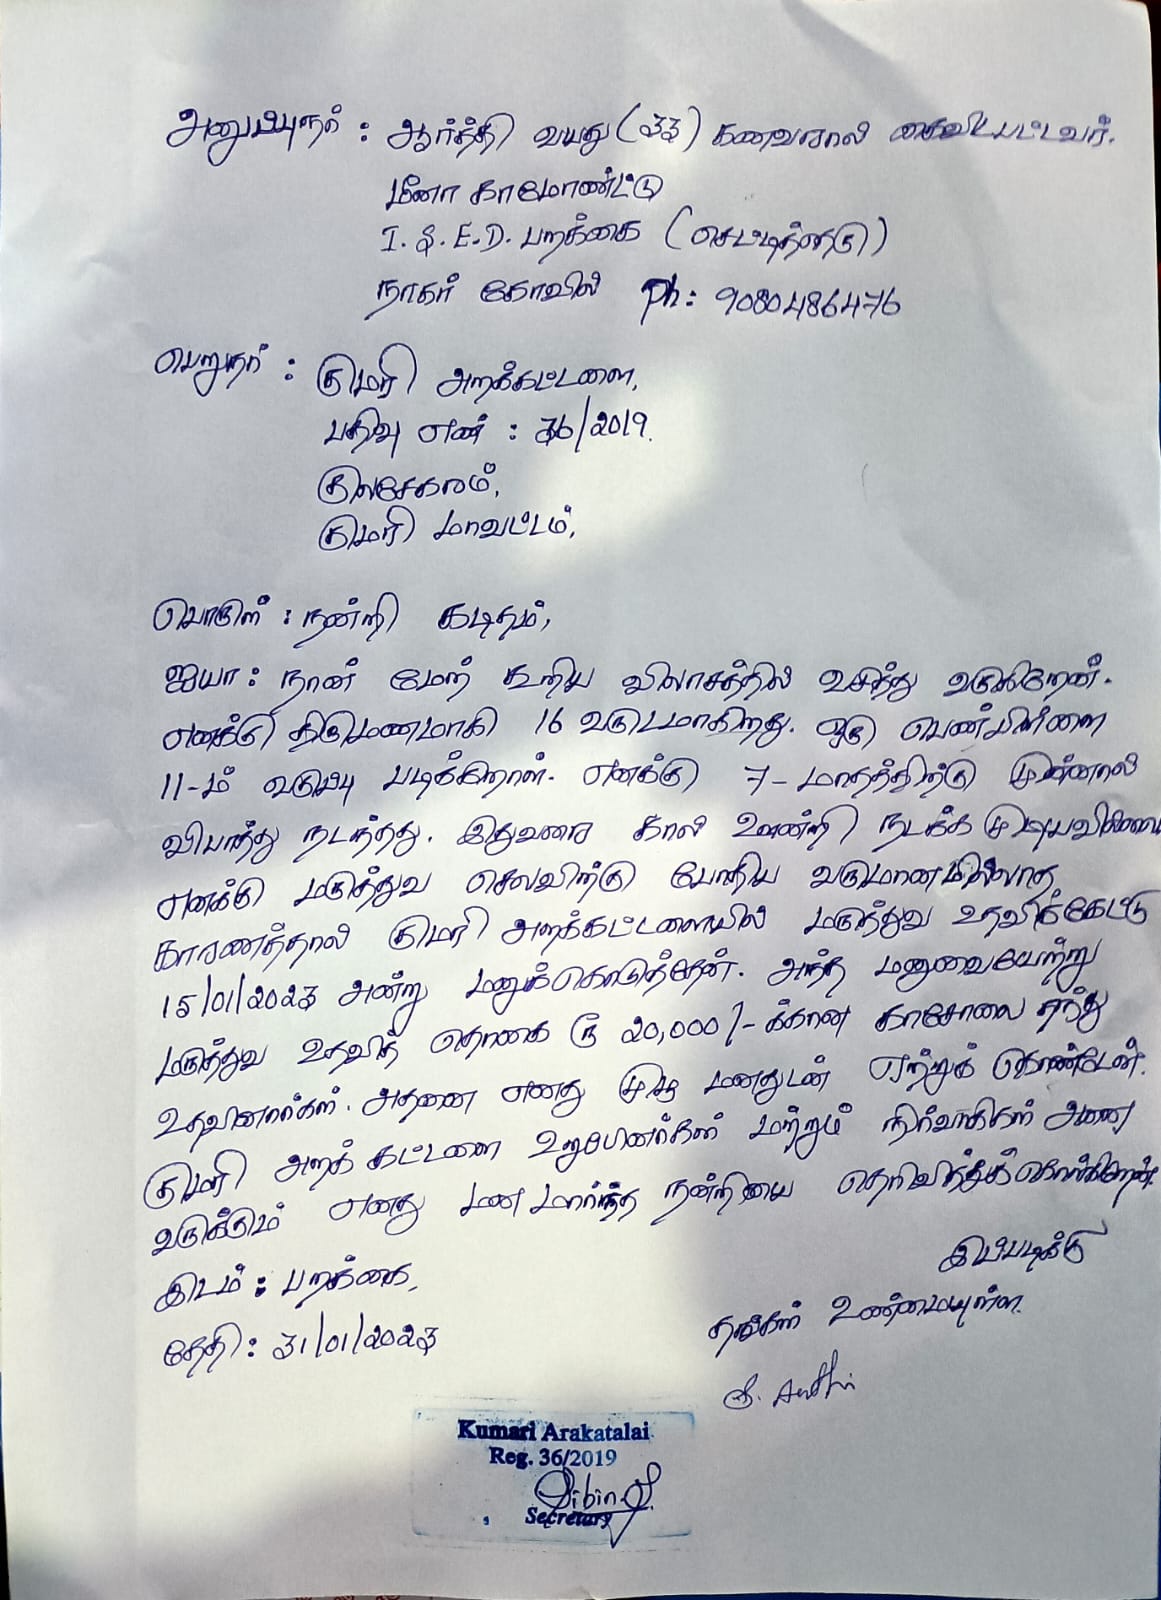 அனுப்புநர் : ஆர்த்தி வயது (33) கணவரால் கைவிடபட்டவர்.
மீனா காமோண்ட்டு
I. S. E. D. பறக்கை (செட்டித்தெரு)
நாகர் கோவில் Ph: 9080486476
பெறுநர் : குமரி அறக்கட்டளை,
பதிவு எண் : 36/2019.
குலசேகரம்,
குமரி மாவட்டம்,
பொருள் : நன்றி கடிதம்,
ஐயா : நான் மேற் கூறிய விலாசத்தில் வசித்து வருகிறேன்.
எனக்கு திருமணமாகி 16 வருடமாகிறது. ஒரு பெண்பிள்ளை
11-ம் வகுப்பு படிக்கிறாள். எனக்கு 7-மாதத்திற்கு முன்னால்
விபத்து நடந்தது. இதுவரை கால் ஊன்றி நடக்க முடியவில்லை
எனக்கு மருத்துவ செலவிற்கு போதிய வருமானமில்லாத
காரணத்தால் குமரி அறக்கட்டளையில் மருத்துவ உதவிக்கேட்டு
15/01/2023 அன்று மனுக்கொடுத்தேன். அந்த மனுவையேற்று
மருத்துவ உதவித் தொகை ரூ 20,000/-க்கான காசோலை தந்து
உதவினார்கள். அதனை எனது முழு மனதுடன் ஏற்றுக் கொண்டேன்.
குமரி அறக் கட்டளை உறுபினர்கள் மற்றும் நிர்வாகிகள் அனை
வருக்கும் எனது மன மார்ந்த நன்றியை தெரிவித்துக்கொள்கிறேன்.
இப்படிக்கு
இடம் : பறக்கை,
தங்கள் உண்மையுள்ள.
தேதி : 31/01/2023
Kumari Arakatalai
Reg. 36/2019
Sibin.S.
Secretary